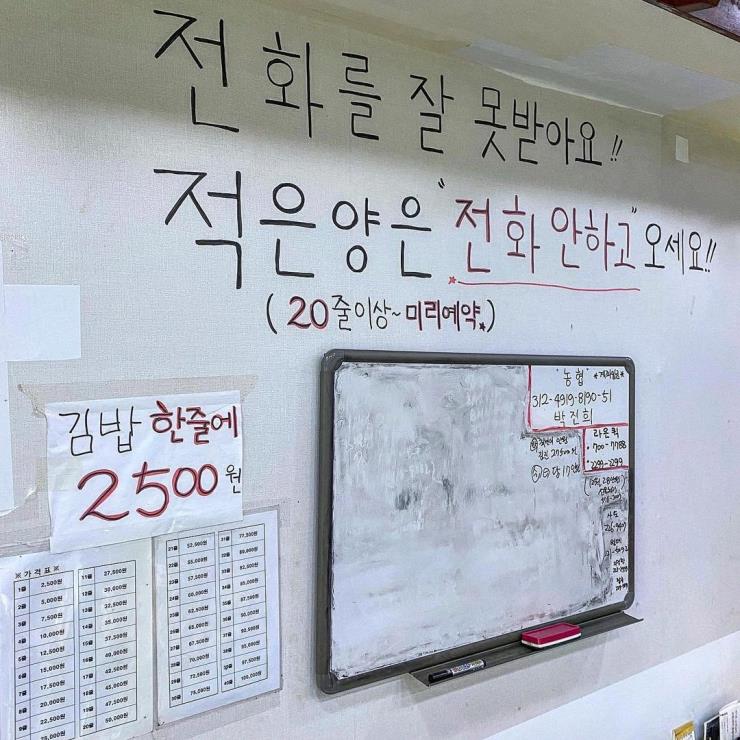 전화를 잘 못받아요!!
적은양은 "전화 안하고" 오세요!!
(20줄이상~미리예약)
김밥 한줄에
2500원
농협
312-4919-8190-51
박진희
라온퀵
700-7788
2299-2299
※가격표※
1줄 2,500원
2줄 5,000원
3줄 7,500원
4줄 10,000원
5줄 12,500원
6줄 15,000원
7줄 17,500원
8줄 20,000원
9줄 22,500원
25,000원
11줄 27,500원
12줄 30,000원
13줄 32,500원
14줄 35,000원
15줄 37,500원
16줄 40,000원
17줄 42,500원
18줄 45,000원
19줄 47,500원
20줄 50,000원
21줄 52,500원
22줄 55,000원
23줄 57,500원
24줄 60,000원
25줄 62,500원
26줄 65,000원
27줄 67,500원
28줄 70,000원
29줄 72,500원
30줄 75,000원
31줄 77,500원
32줄 80,000원
33줄 82,500원
34줄 85,000원
35줄 87,500원
36줄 90,000원
37줄 92,500원
38줄 95,000원
39줄 97,500원
40줄 100,000원